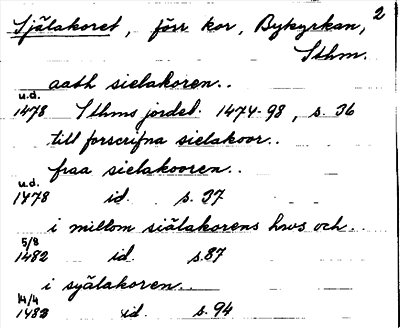 2
Själakoret, förr kor, Bykyrkan,
Sthm.
aath sielakoren..
u.d.
1478 Sthms jordeb. 1474-98, s. 36
till forscrifna sielakoor..
fraa sielakooren..
u.d.
1478 id. s. 37
i millom siälakorens hws och..
5/8
1482 id. s.87
i syälakoren..
14/4
1483 id. s. 94